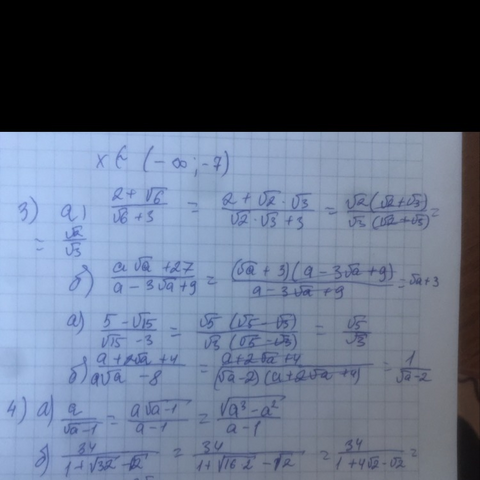 x ∈ (-∞; -7)
3) а) (2+√6)/(√6+3) = (2+√2·√3)/(√2·√3+3) = (√2(√2+√3))/(√3(√2+√3)) =
= √2/√3
б) (a√a+27)/(a-3√a+9) = ((√a+3)(a-3√a+9))/(a-3√a+9) = √a+3
а) (5-√15)/(√15-3) = (√5(√5-√3))/(√3(√5-√3)) = √5/√3
б) (a+2√a+4)/(a√a-8) = (a+2√a+4)/((√a-2)(a+2√a+4)) = 1/(√a-2)
4) а) a/√(a-1) = (a√(a-1))/(a-1) = √(a³-a²)/(a-1)
б) 34/(1+√32-√2) = 34/(1+√(16·2)-√2) = 34/(1+4√2-√2) =